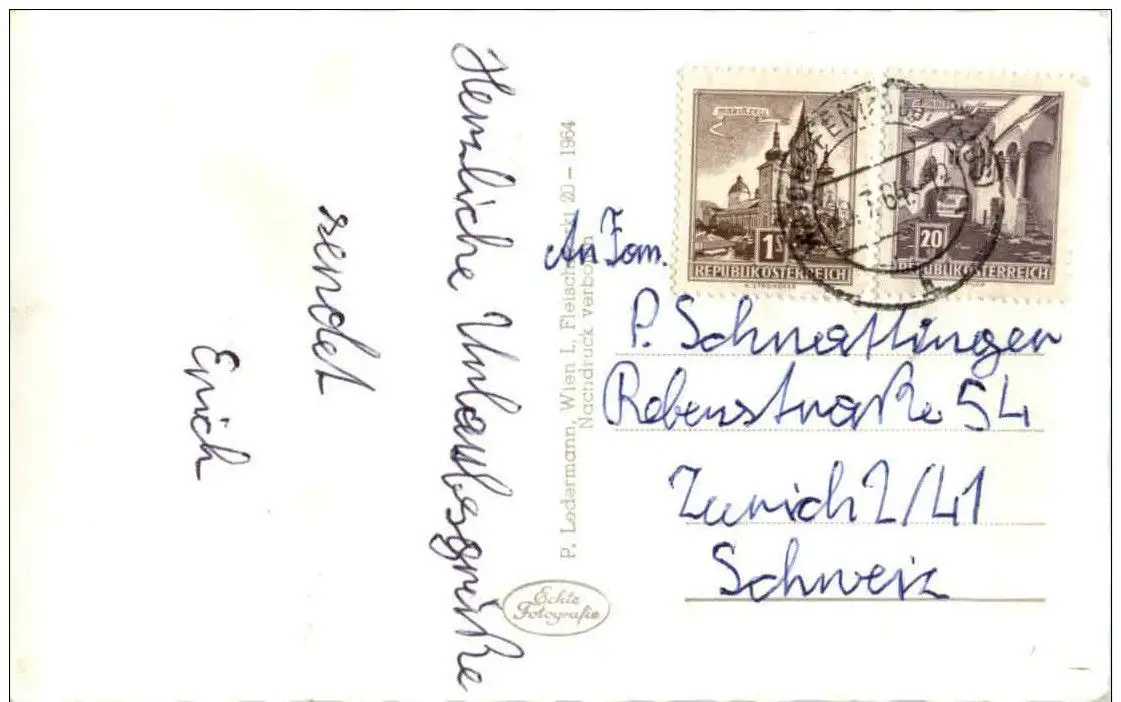 Herzliche Urlaubsgrüße
sendet
Erich
P. Ledermann, Wien I, Fleischmarkt 20 – 1964
Nachdruck verboten
Echte
Fotografie
MARIAZELL
1S
REPUBLIK ÖSTERREICH
20
REPUBLIK ÖSTERREICH
7.64
An Fam.
P. Schnattinger
Rebenstraße 54
Zürich 2/41
Schweiz